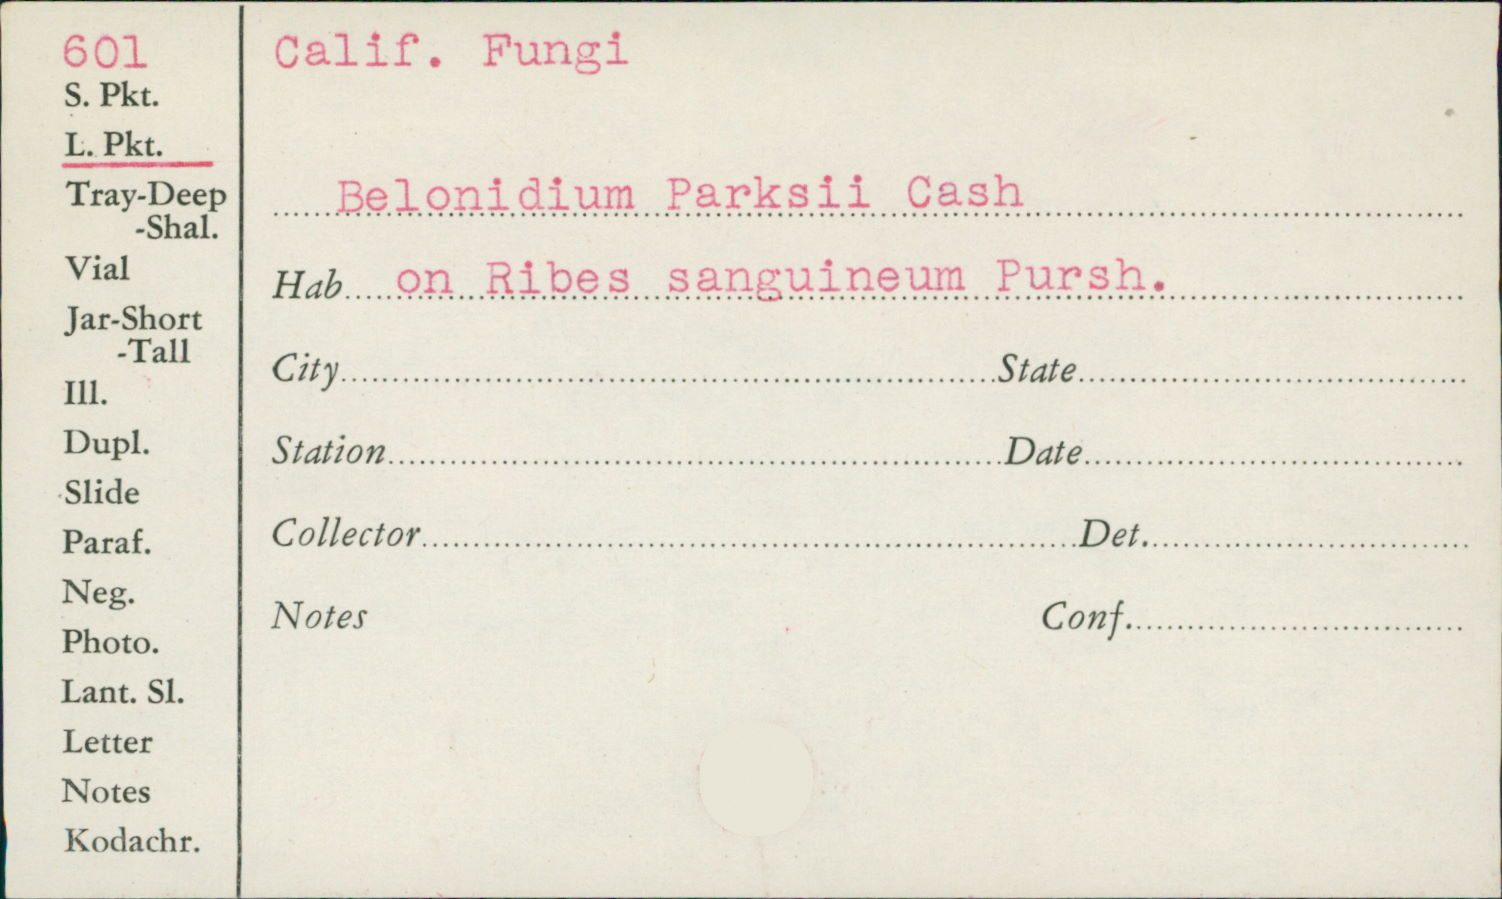 601
S. Pkt.
L. Pkt.
Tray-Deep
-Shal.
Vial
Jar-Short
-Tall
Ill.
Dupl.
Slide
Paraf.
Neg.
Photo.
Lant. Sl.
Letter
Notes
Kodachr.
Calif. Fungi
Belonidium Parksii Cash
Hab on Ribes sanguineum Pursh.
City State
Station Date
Collector Det.
Notes Conf.